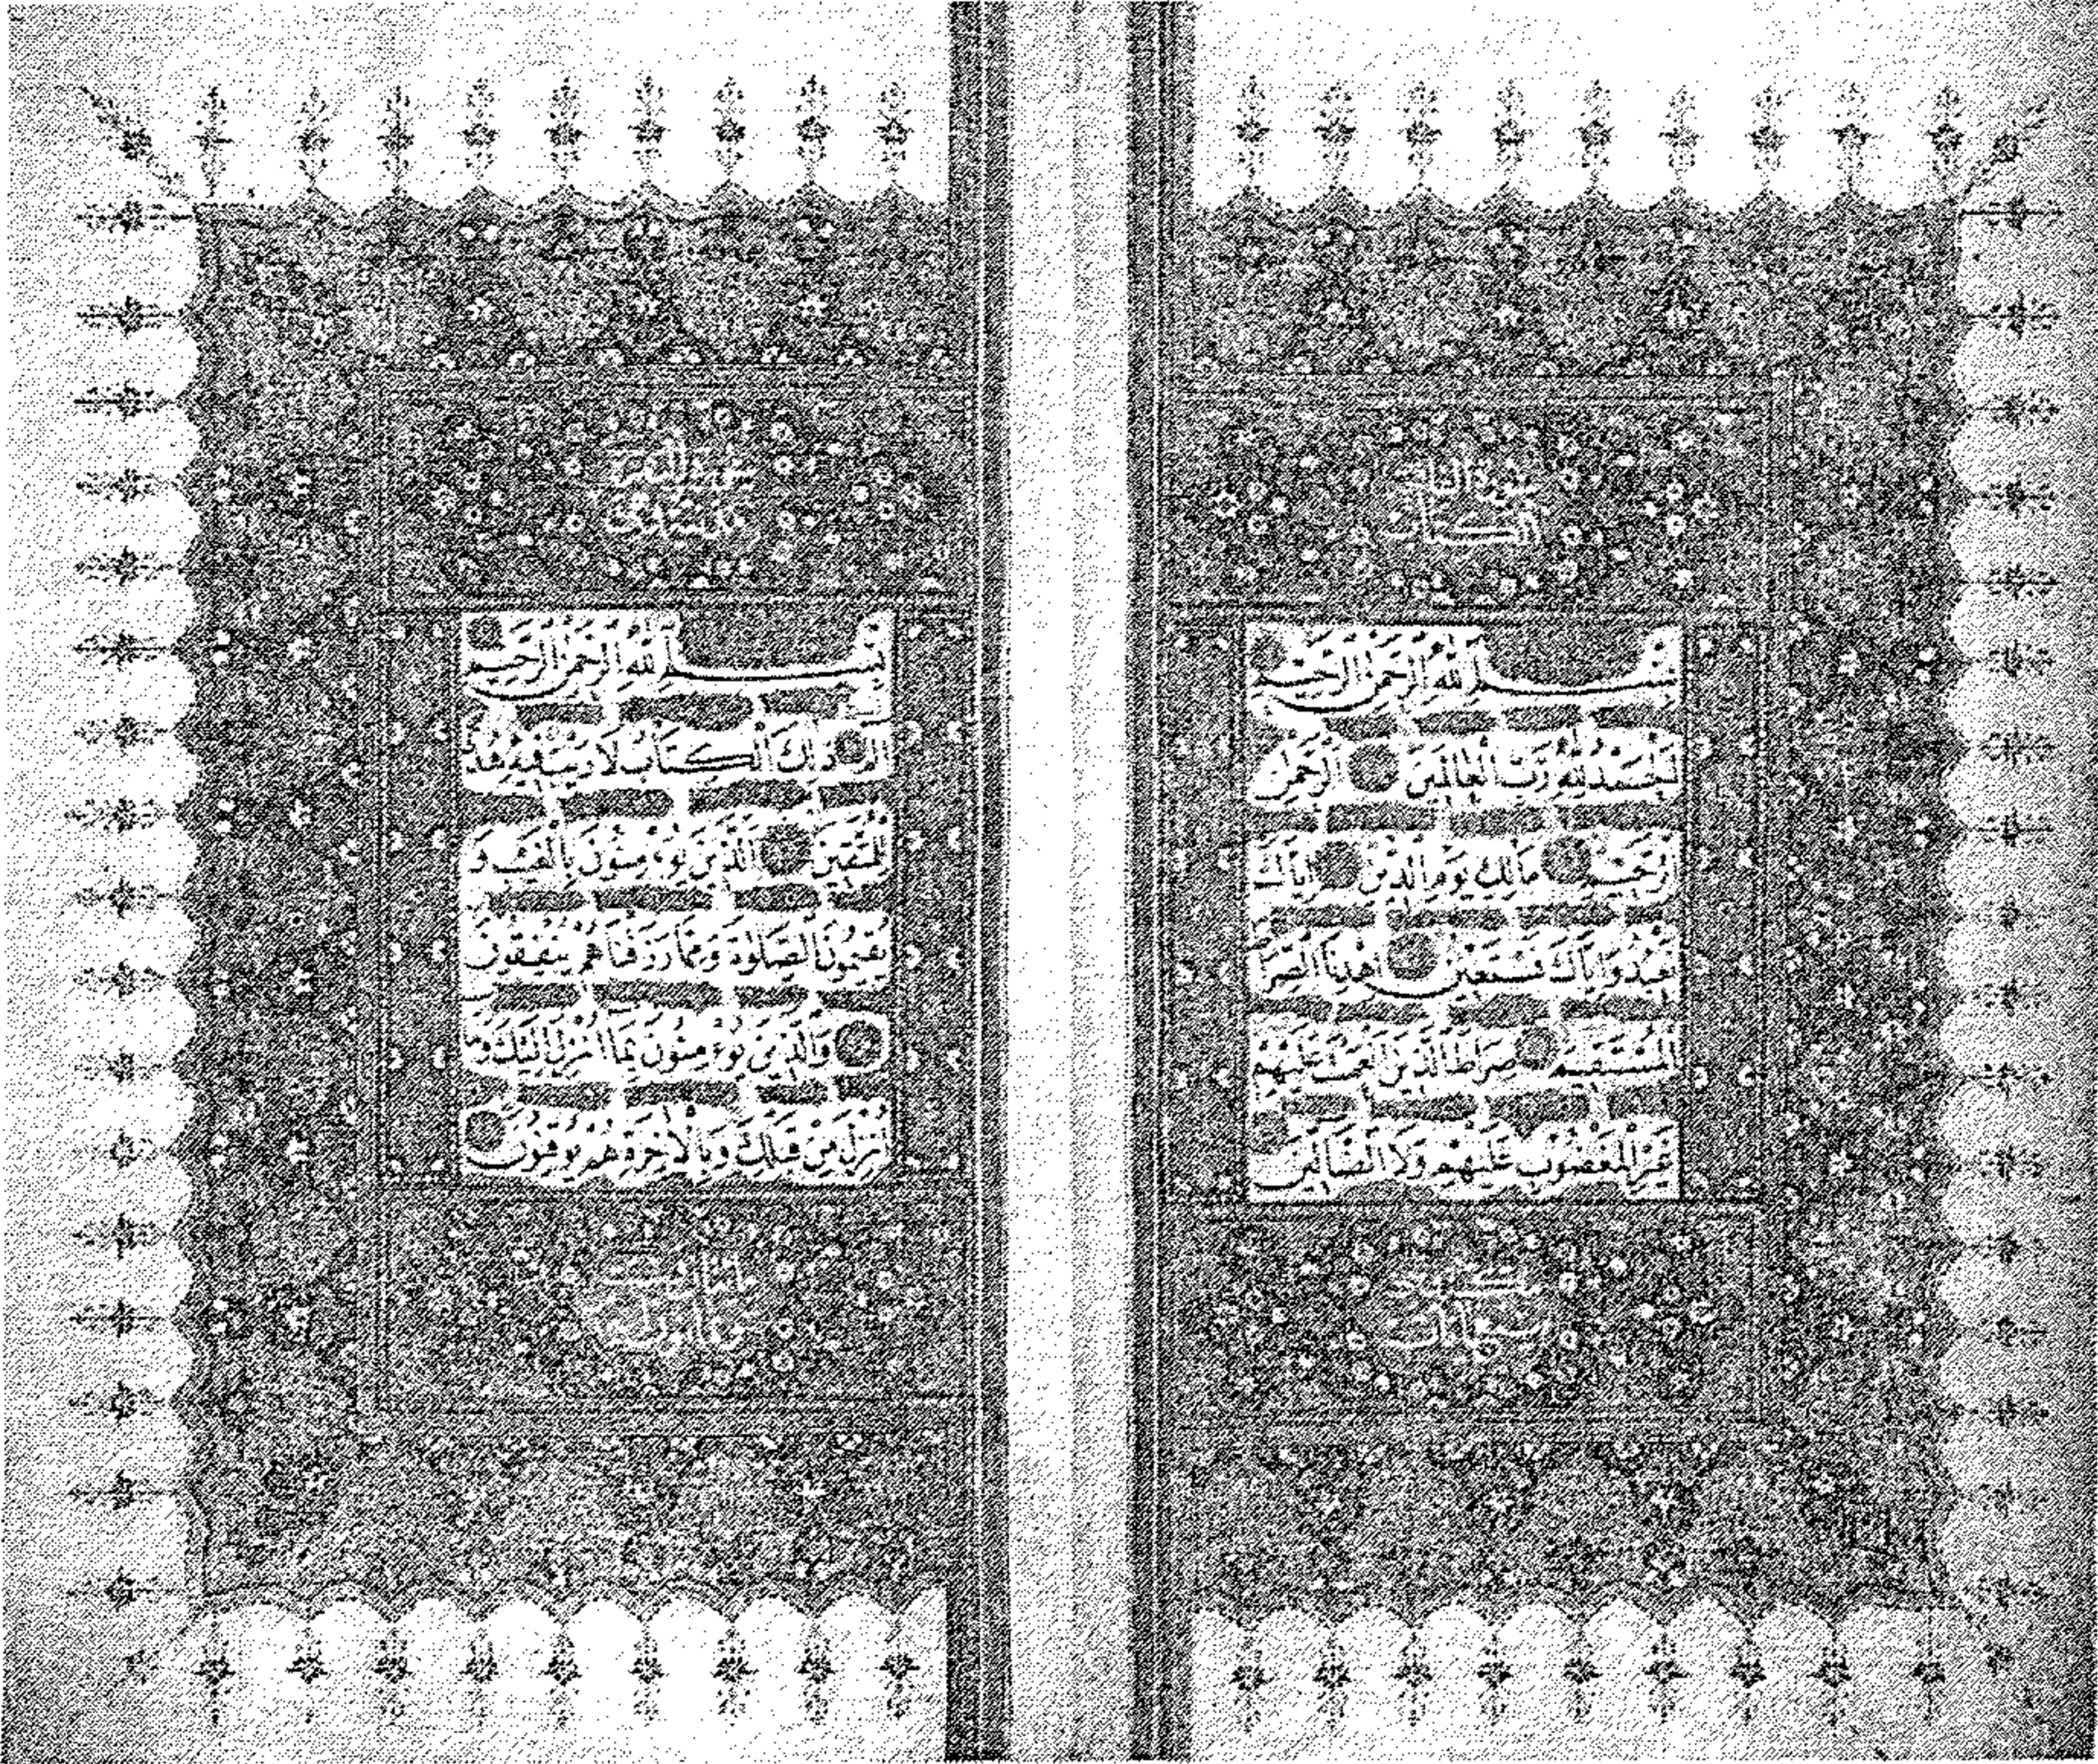 سورة
الكتاب
بِسْمِ اللّٰهِ الرَّحْمٰنِ الرَّحِيمِ
اَلْحَمْدُ لِلّٰهِ رَبِّ الْعَالَمِينَ الرَّحْمٰنِ
الرَّحِيمِ مَالِكِ يَوْمِ الدِّينِ اِيَّاكَ
نَعْبُدُ وَاِيَّاكَ نَسْتَعِينُ اِهْدِنَا الصِّرَاطَ
الْمُسْتَقِيمَ صِرَاطَ الَّذِينَ اَنْعَمْتَ عَلَيْهِمْ
غَيْرِ الْمَغْضُوبِ عَلَيْهِمْ وَلَا الضَّالِّينَ
سبع آيات
سورة البقرة
بِسْمِ اللّٰهِ الرَّحْمٰنِ الرَّحِيمِ
الم ذٰلِكَ الْكِتَابُ لَا رَيْبَ فِيهِ هُدًى
لِلْمُتَّقِينَ الَّذِينَ يُؤْمِنُونَ بِالْغَيْبِ وَ
يُقِيمُونَ الصَّلٰوةَ وَمِمَّا رَزَقْنَاهُمْ يُنْفِقُونَ
وَالَّذِينَ يُؤْمِنُونَ بِمَا اُنْزِلَ اِلَيْكَ وَمَا
اُنْزِلَ مِنْ قَبْلِكَ وَبِالْاٰخِرَةِ هُمْ يُوقِنُونَ